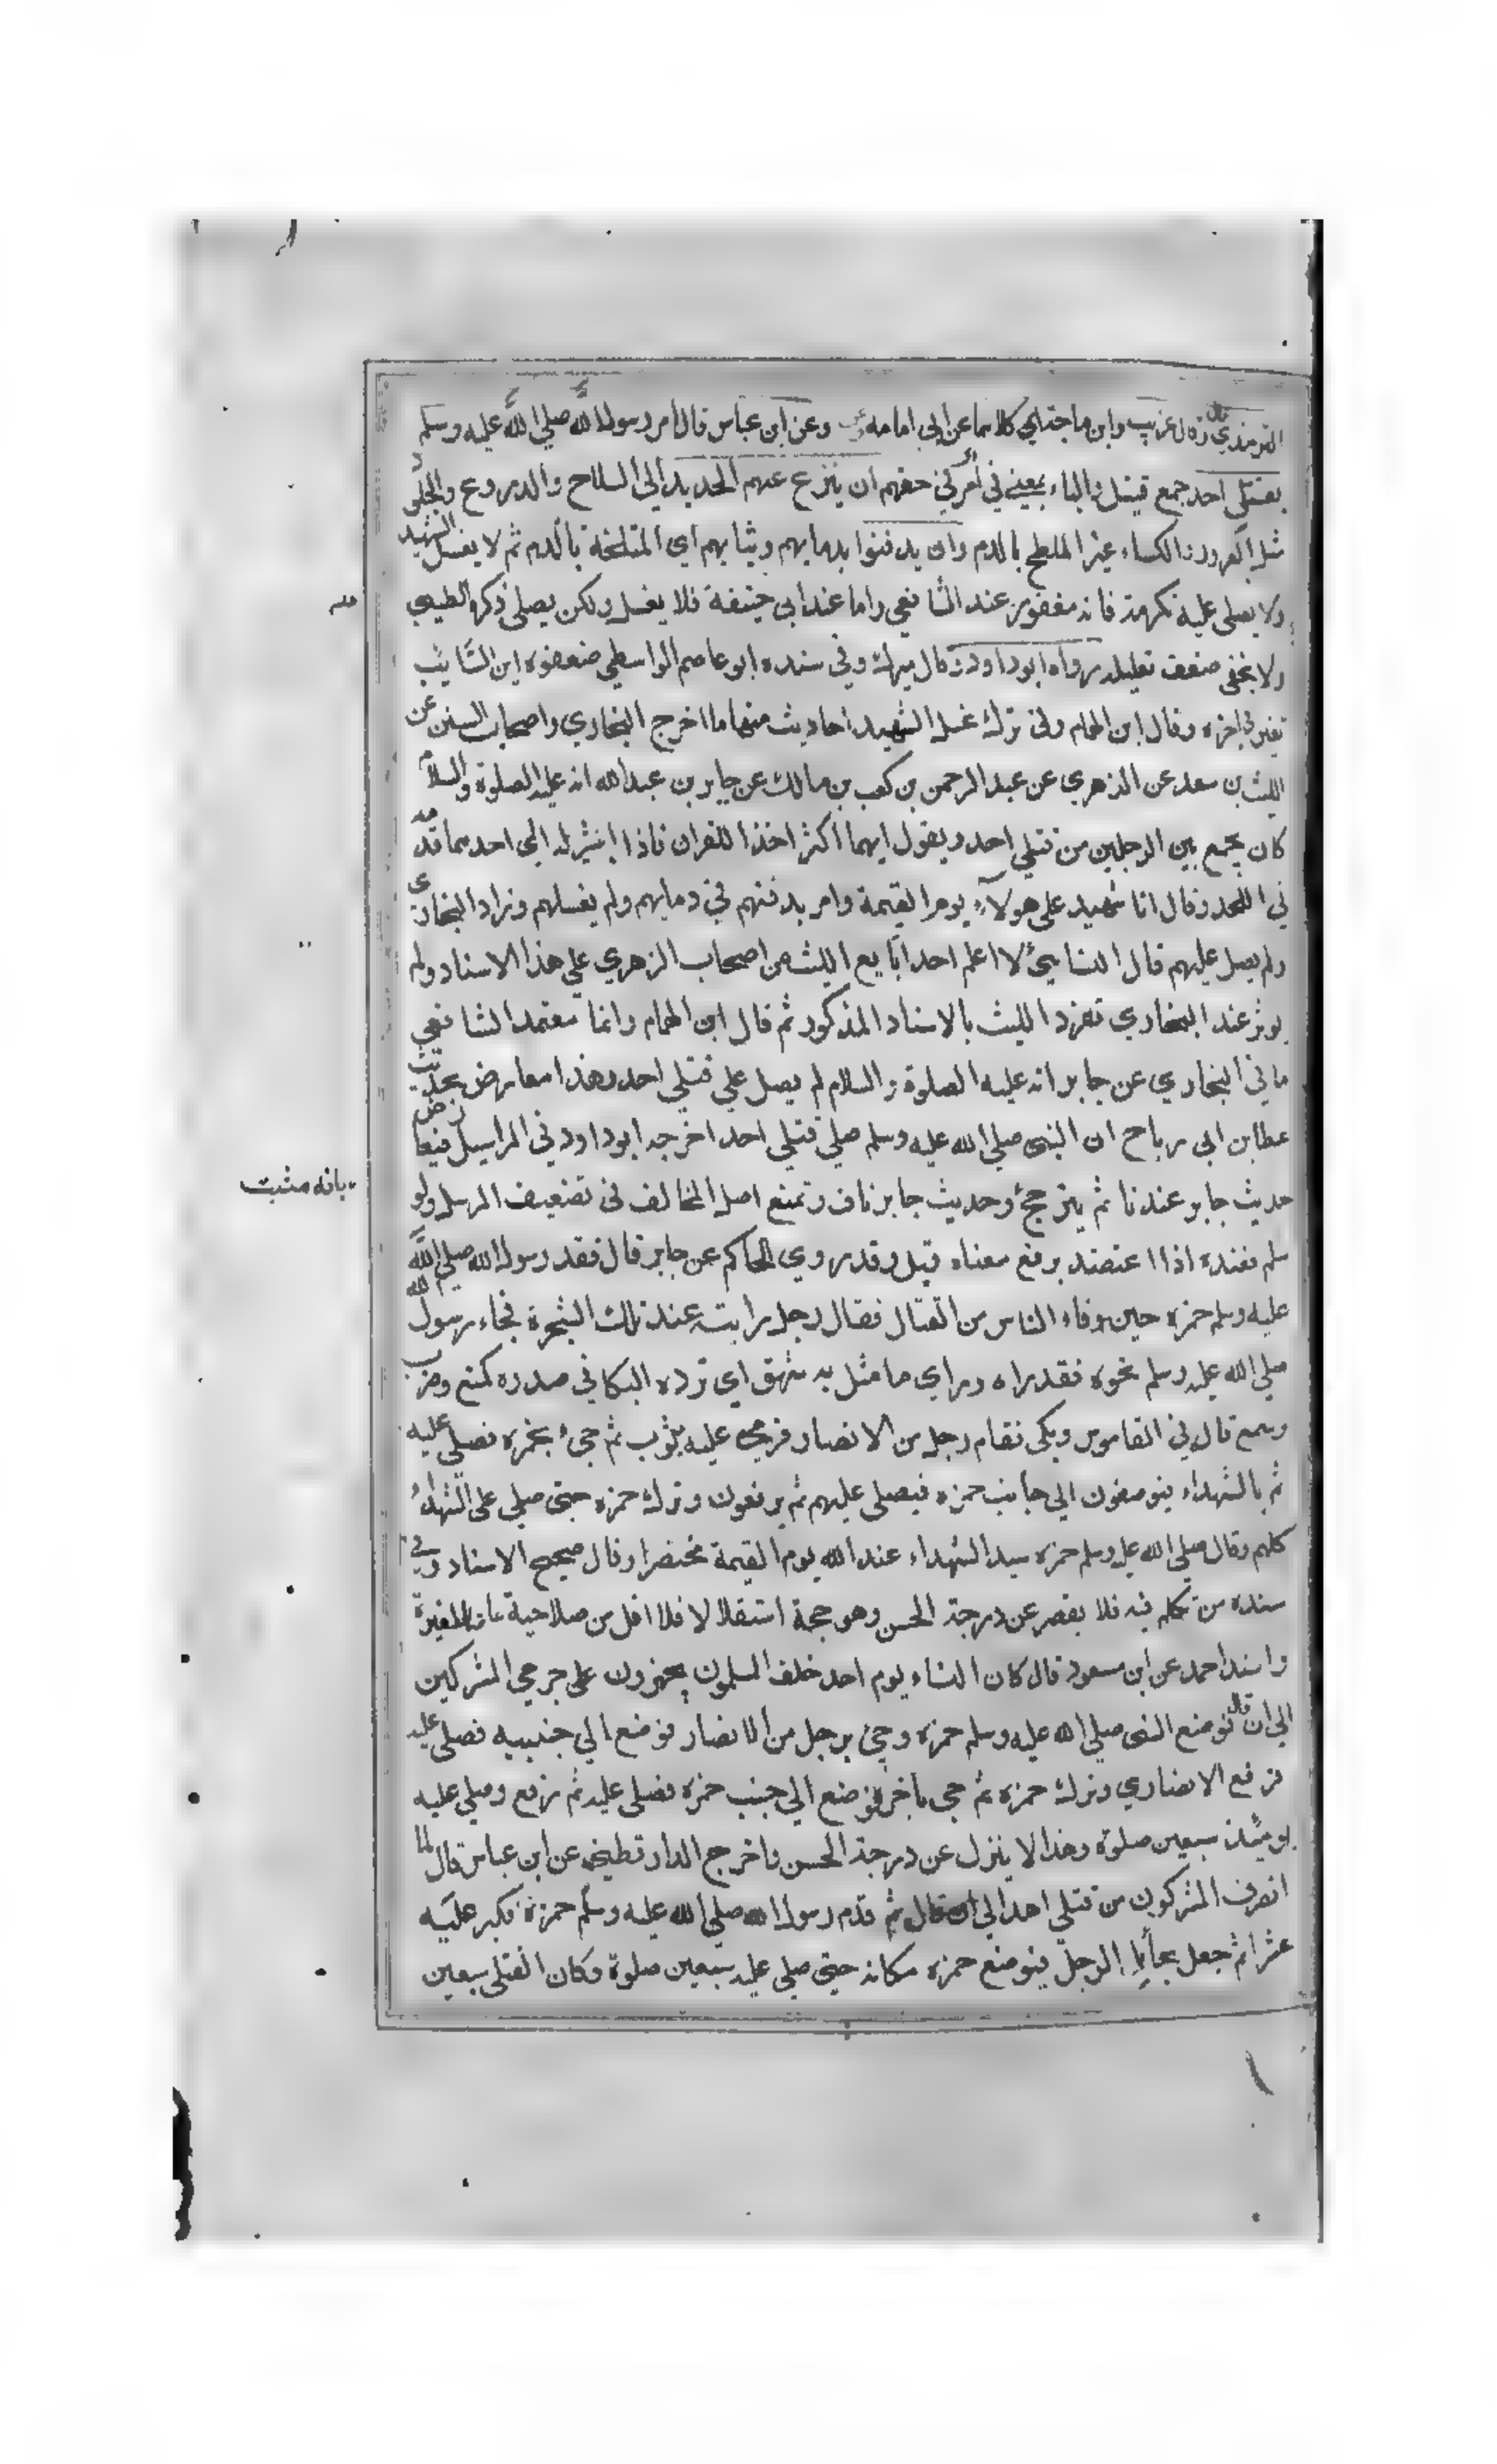 الترمذي وقال قال غريب وابن ماجة اي كلاهما عن ابي امامه وعن ابن عباس قال امر رسول الله صلى الله عليه وسلم
بقتلي احد جمع قتيل والباء بمعني في اي امر في حقهم ان ينزع عنهم الحديد اي السلاح والدروع والجلود
مثل الفرو والكساء غير الملطخ بالدم وان يدفنوا بدمايهم وثيابهم اي المتلطخة بالدم ثم لا يغسل الشهيد
ولا يصلى عليه تكرمة فانه مغفور عند الشافعي واما عند ابي حنيفة فلا يغسل ولكن يصلى ذكره الطيبي
ولا يخفى ضعف تعليله رواه ابو داود وقال ميرك وفي سنده ابو عاصم الواسطي ضعفوه ابن السايب
تغير في اخره وقال ابن الهمام وفي ترك غسل الشهيد احاديث منها ما اخرج البخاري واصحاب السنن عن
الليث بن سعد عن الزهري عن عبد الرحمن بن كعب بن مالك عن جابر بن عبد الله انه عليه الصلوة والسلام
كان يجمع بين الرجلين من قتلي احد ويقول ايهما اكثر اخذا للقران فاذا اشير له الى احدهما قدمه
في اللحد وقال انا شهيد على هولاء يوم القيمة وامر بدفنهم في دمايهم ولم يغسلهم وزاد البخاري
ولم يصل عليهم قال النسايئ لا اعلم احدا تابع الليث من اصحاب الزهري على هذا الاسناد ولم
يوثر عند البخاري تفرد الليث بالاسناد المذكور ثم قال ابن الهمام وانما معتمد الشافعي
ما في البخاري عن جابر انه عليه الصلوة والسلام لم يصل علي قتلي احد وهذا معارض بحديث
عطا بن ابي رباح ان النبي صلي الله عليه وسلم صلي قتلي احد اخرجه ابو داود في المراسيل فيعارض
حديث جابر عندنا ثم يترجح وحديث جابر ناف وتمنع اصل المخالف في تضعيف المرسل ولو
بانه مثبت
سلم فعنده اذا اعتضد برفع معناه قيل وقد روي الحاكم عن جابر قال فقد رسول الله صلي الله
عليه وسلم حمزه حين فاء الناس من القتال فقال رجل رايته عند تلك الشجرة فجاء رسول الله
صلي الله عليه وسلم نحوه فقد راه وراي ما مثل به شهق اي تردد البكا في صدره كمنع وضرب
وسمع قال في القاموس وبكى فقام رجل من الانصار فرمى عليه بثوب ثم جيء بحمزه فصلي عليه
ثم بالشهداء فيوضعون الي جانب حمزه فيصلي عليهم ثم يرفعون وترك حمزه حتى صلي على الشهداء
كلهم وقال صلي الله عليه وسلم حمزه سيد الشهداء عند الله يوم القيمة مختصرا وقال صحيح الاسناد وفي
سنده من تكلم فيه فلا يقصر عن درجة الحسن وهو حجة استقلالا فلا اقل من صلاحية عاضدا لغيره
واسند احمد عن ابن مسعود قال كان النساء يوم احد خلف المسلمون يجهزون على جرحي المشركين
الى ان قال فوضع النبي صلي الله عليه وسلم حمزه وجئ برجل من الانصار فوضع الي جنبيه فصلى عليه
فرفع الانصاري وترك حمزه ثم جي باخر فوضع الي جنب حمزه فصلى عليه ثم رفع وصلي عليه
يومئذ سبعين صلوة وهذا لا ينزل عن درجة الحسن واخرج الدارقطني عن ابن عباس قال لما
انصرف المشركون من قتلي احد الى ان قال ثم قدم رسول الله صلي الله عليه وسلم حمزه فكبر عليه
عشرا ثم جعل يجاء بالرجل فيوضع حمزه مكانه حتى صلي عليه سبعين صلوة وكان القتلى سبعين